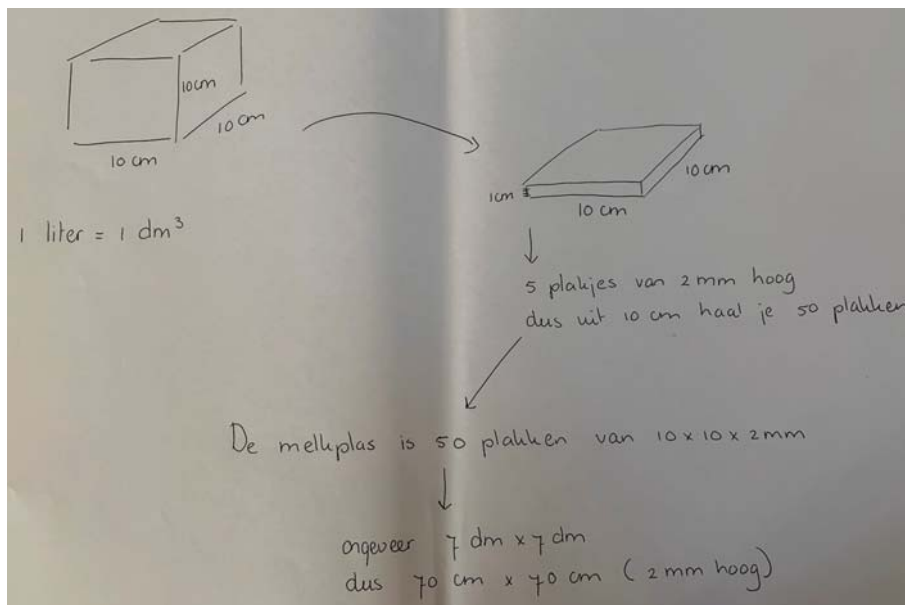 10cm
10cm
10 cm
1 liter = 1 dm³
1cm
10cm
10 cm
5 plakjes van 2mm hoog
dus uit 10 cm haal je 50 plakken
De melkplas is 50 plakken van 10 x 10 x 2mm
ongeveer 7 dm x 7 dm
dus 70 cm x 70 cm (2mm hoog)